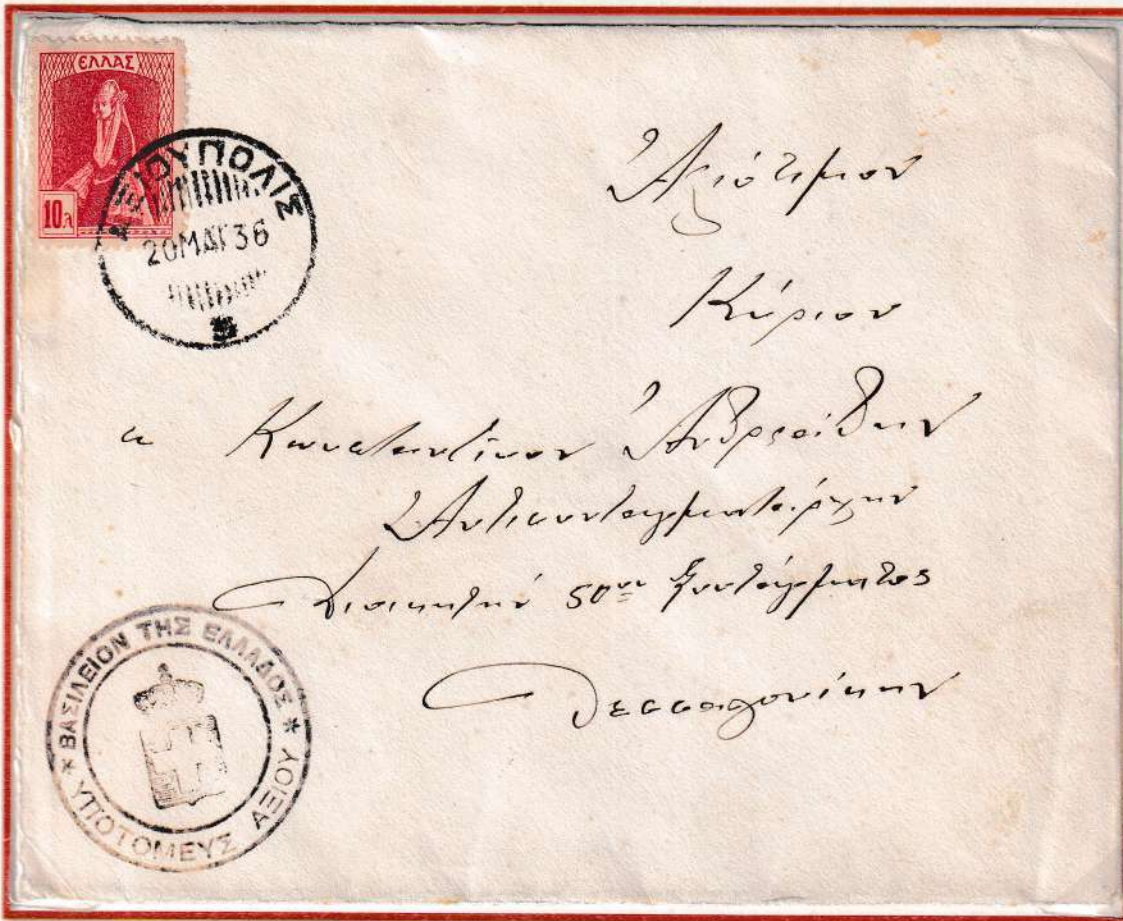 ΕΛΛΑΣ
10λ
ΑΞΙΟΥΠΟΛΙΣ
20ΜΑΙ36
Ἀξιότιμον
Κύριον
Κωνσταντῖνον Ἀνδρεάδην
Ἀντισυνταγματάρχην
Διοικητήν 50οῦ Συντάγματος
Θεσσαλονίκην
* ΒΑΣΙΛΕΙΟΝ ΤΗΣ ΕΛΛΑΔΟΣ *
ΥΠΟΤΟΜΕΥΣ ΑΞΙΟΥ